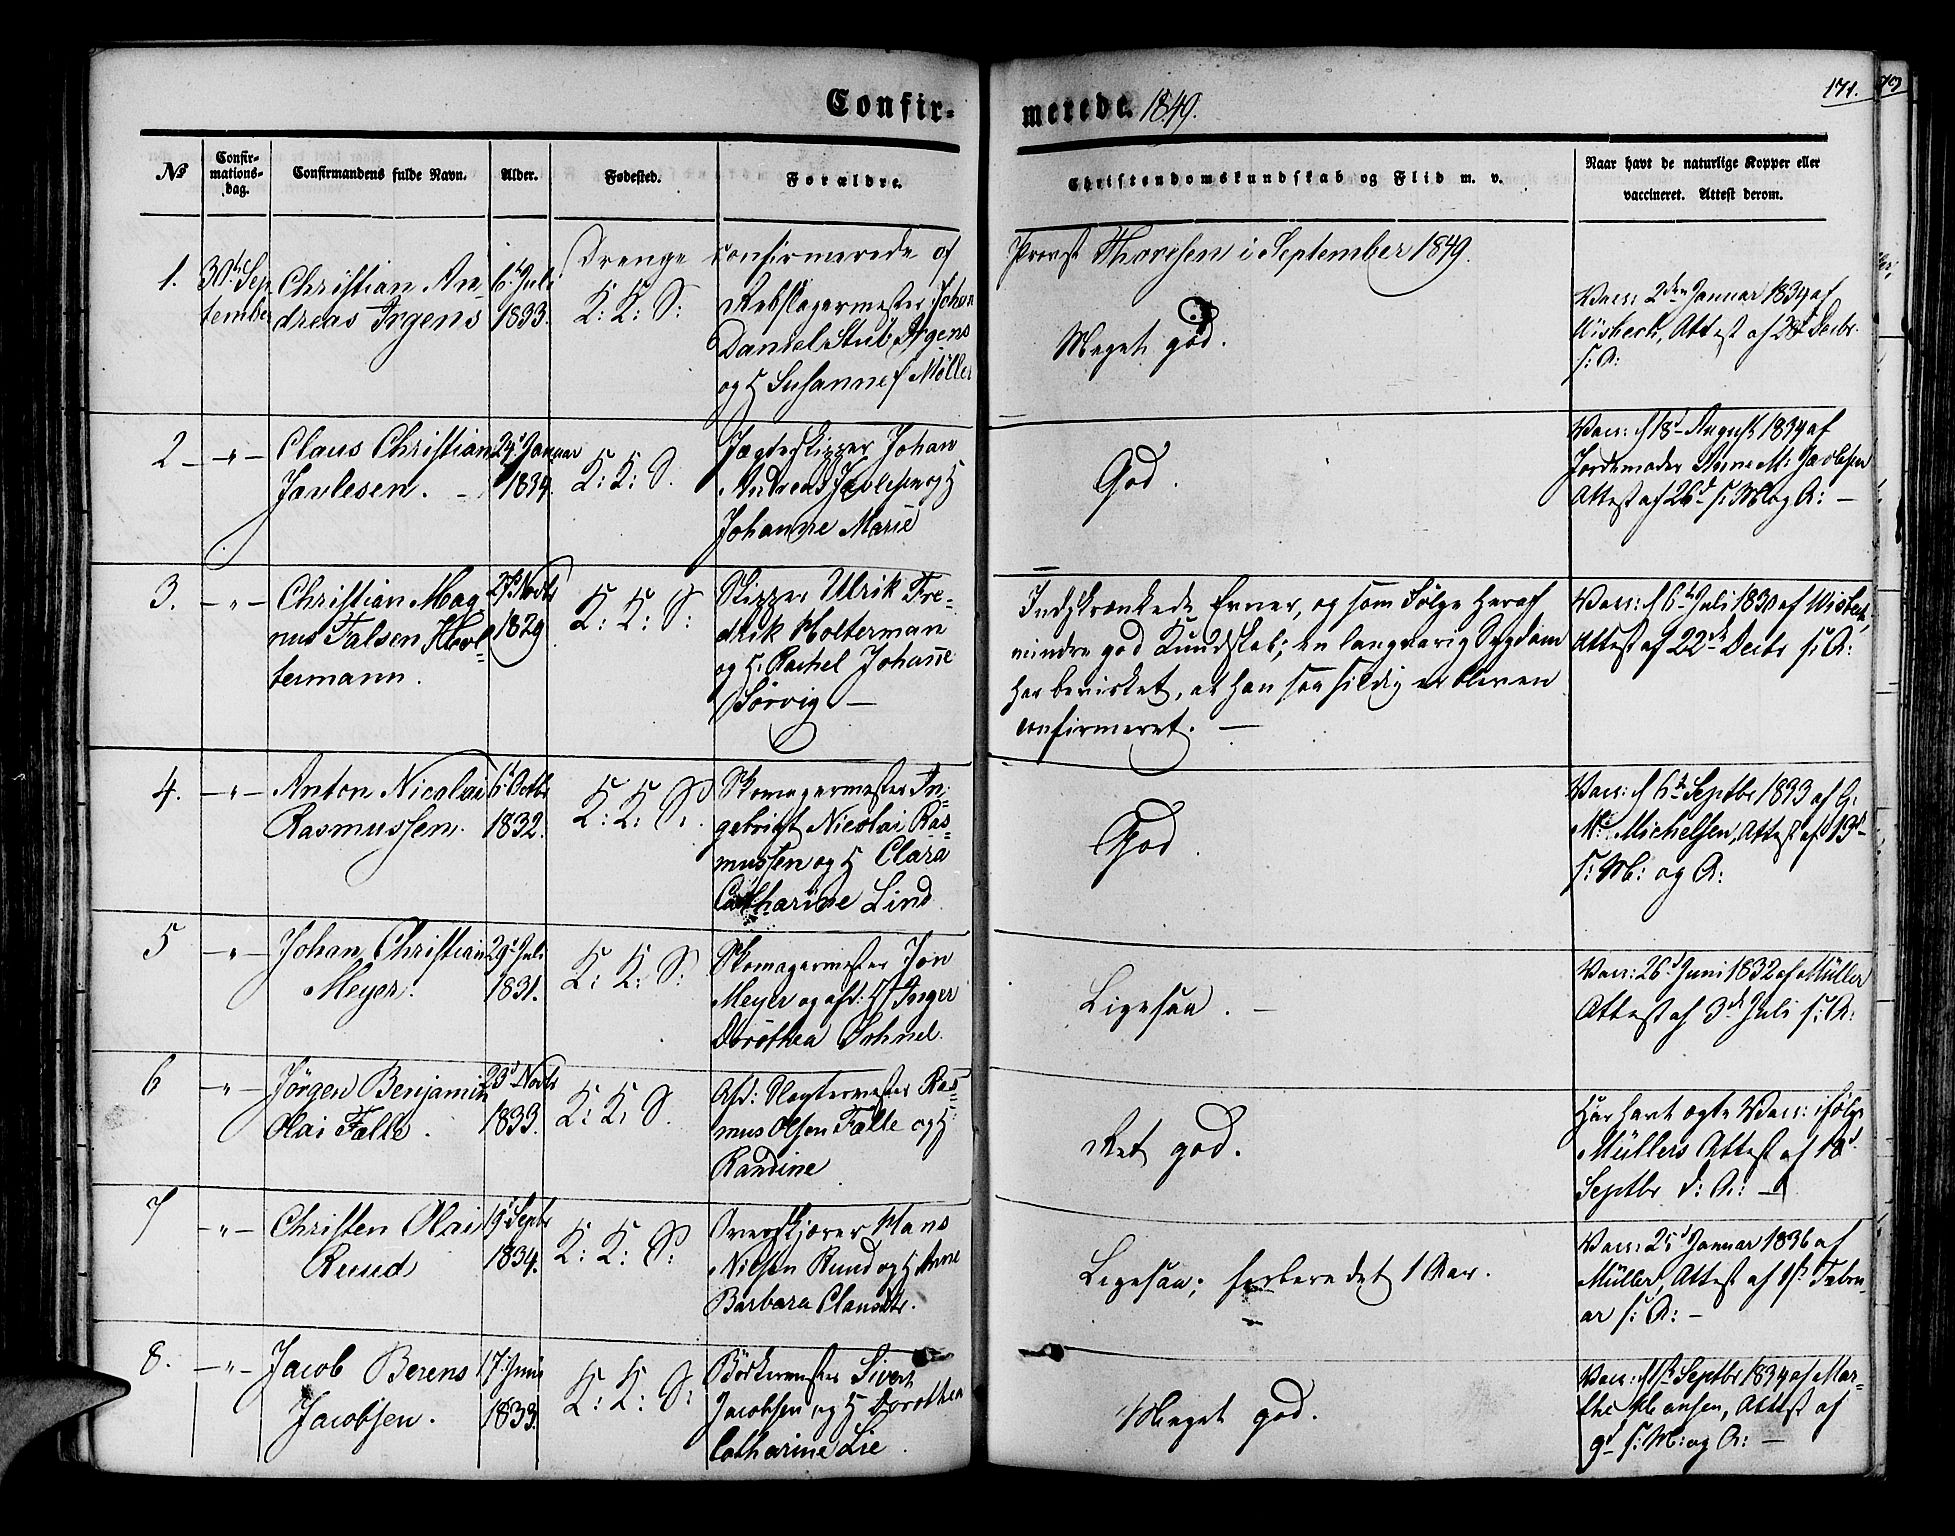 Confir-
merede. 1849.
171.
No
Confir-
mations-
dag.
Confirmandens fulde Navn.
Alder.
Fødested.
Forældre.
Christendomskundskab og Flid m. v.
Naar havt de naturlige Kopper eller
vaccineret. Attest derom.
Drenge confirmerede af
Provst Thoresen i September 1849.
1.
30te Sep
tember
Christian An
dreas Irgens
6t Juli
1833.
K: K: S:
Rebslagermester Johan
Daniel Stub Irgens
og H Susanne Møller
Meget god.
Vacc: 2den Januar 1834 af
Wisbech, Attest af Decbr
s: A:
2
- " -
Claus Christian
Javlesen.
Januar
1834.
K: K: S.
Jægteskipper Johan
Andreas Javlesen og H
Johanne Marie
God.
Vacc: d 18d August 1834 af
Jordemoder Anne M: Javlesen
Attest af 26d s: M og A: -
3.
- " -
Christian Mag
nus Falsen Hol-
termann.
27d Novbr
1829
K: K: S:
Skipper Ulrik Fre-
drik Holterman
og H. Rachel Johanne
Sørvig -
Indskrænkede Evner, og som Følge heraf
mindre god Kundskab; en langvarig Sygdom
har bevirket, at han saa sildig er bleven
confirmeret. -
Vacc: d 6te Juli 1830 af Wisbech,
Attest af 22de Decbr s: A:
4.
- " -
Anton Nicolai
Rasmussen.
6t Octbr
1832.
K: K: S.
Skomagermester In-
gebrigt Nicolai Ras-
mussen og H Clara
Catharine Lind
God.
Vacc: d 6te Septbr 1833 af G.
M: Michelsen, Attest af 13d
s: M: og A:
5
- " -
Johan Christian
Meyer.
29t Juli
1831.
K: K: S:
Skomagermester Jon
Meyer og afd: H Inger
Dorothea Sohnel.
Ligesaa. -
Vacc: 26d Juni 1832 af Müller
Attest af 3de Juli s: A:
6
- " -
Jørgen Benjamin
Olai Falle.
23d Novbr
1833.
K: K: S.
Afd: Slagtermester Ras
mus Olsen Falle og H
Randine
Ret god.
Har havt ægte Vacc: ifølge
Müllers Attest af 18d
Septbr d: A: -
7
- " -
Christen Olai
Ruud
19d Septbr
1834.
K: K: S:
Overskjærer Hans
Nilsen Ruud og H Anne
Barbara Clausdtr.
Ligesaa; forberedet 1 Aar.
Vacc: 25d Januar 1836 af
Müller, Attest af 1st Febru
ar s: A: -
8.
- " -
Jacob Berens
Jacobsen.
17. Juni
1833.
K: K: S:
Bødkermester Sivert
Jacobsen og H Dorothea
Catharine Lie.
Meget god.
Vacc: d 1st Septbr 1834 af Mar-
the Hansen, Attest af
9d s: M: og A: -